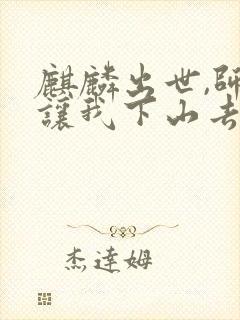 麒麟出世,師
讓我下山去
杰達姆